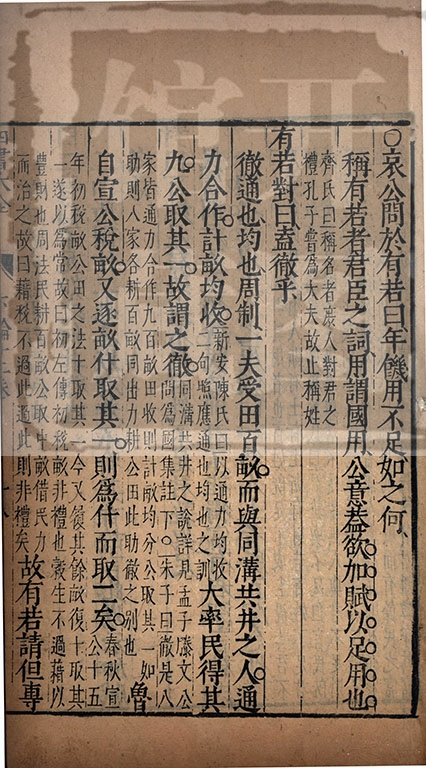 ○哀公問於有若曰年饑用不足如之何
稱有若者君臣之詞用謂國用公意蓋欲加賦以足用也
齊氏曰稱名者哀人對君之
禮孔子嘗為大夫故止稱姓
有若對曰盍徹乎
徹通也均也周制一夫受田百畝而與同溝共井之人通
力合作計畝均收
新安陳氏曰以通力均收
二句照應通也均也之訓
大率民得其
九公取其一故謂之徹
同溝共井之說詳見孟子滕文公
問為國集註下○朱子曰徹是八
家皆通力合作九百畝田收則計畝均分公取其一如
助則八家各耕百畝同出力耕公田此助徹之別也
魯
自宣公稅畝又逐畝什取其一則為什而取二矣
春秋宣
公十五
年初稅畝公田之法十取其一今又履其餘畝復十取其
一遂以為常故曰初左傳初稅畝非禮也穀出不過藉以
豐財也周法民耕百畝公取十畝借民力
而治之故曰藉稅不過此過此則非禮矣
故有若請但專